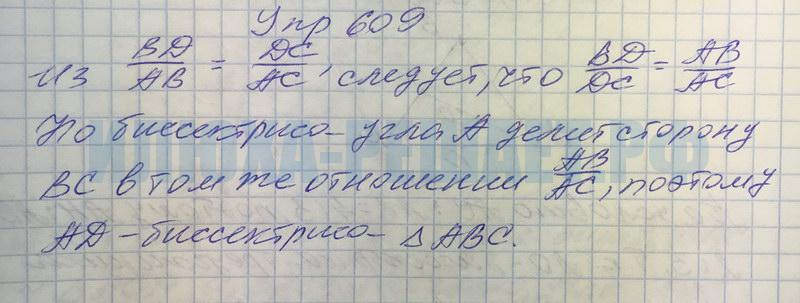 Упр 609
из BD/AB = DC/AC, следует, что BD/DC = AB/AC
Но биссектриса угла А делит сторону
ВС в том же отношении AB/AC, поэтому
AD - биссектриса △ABC.